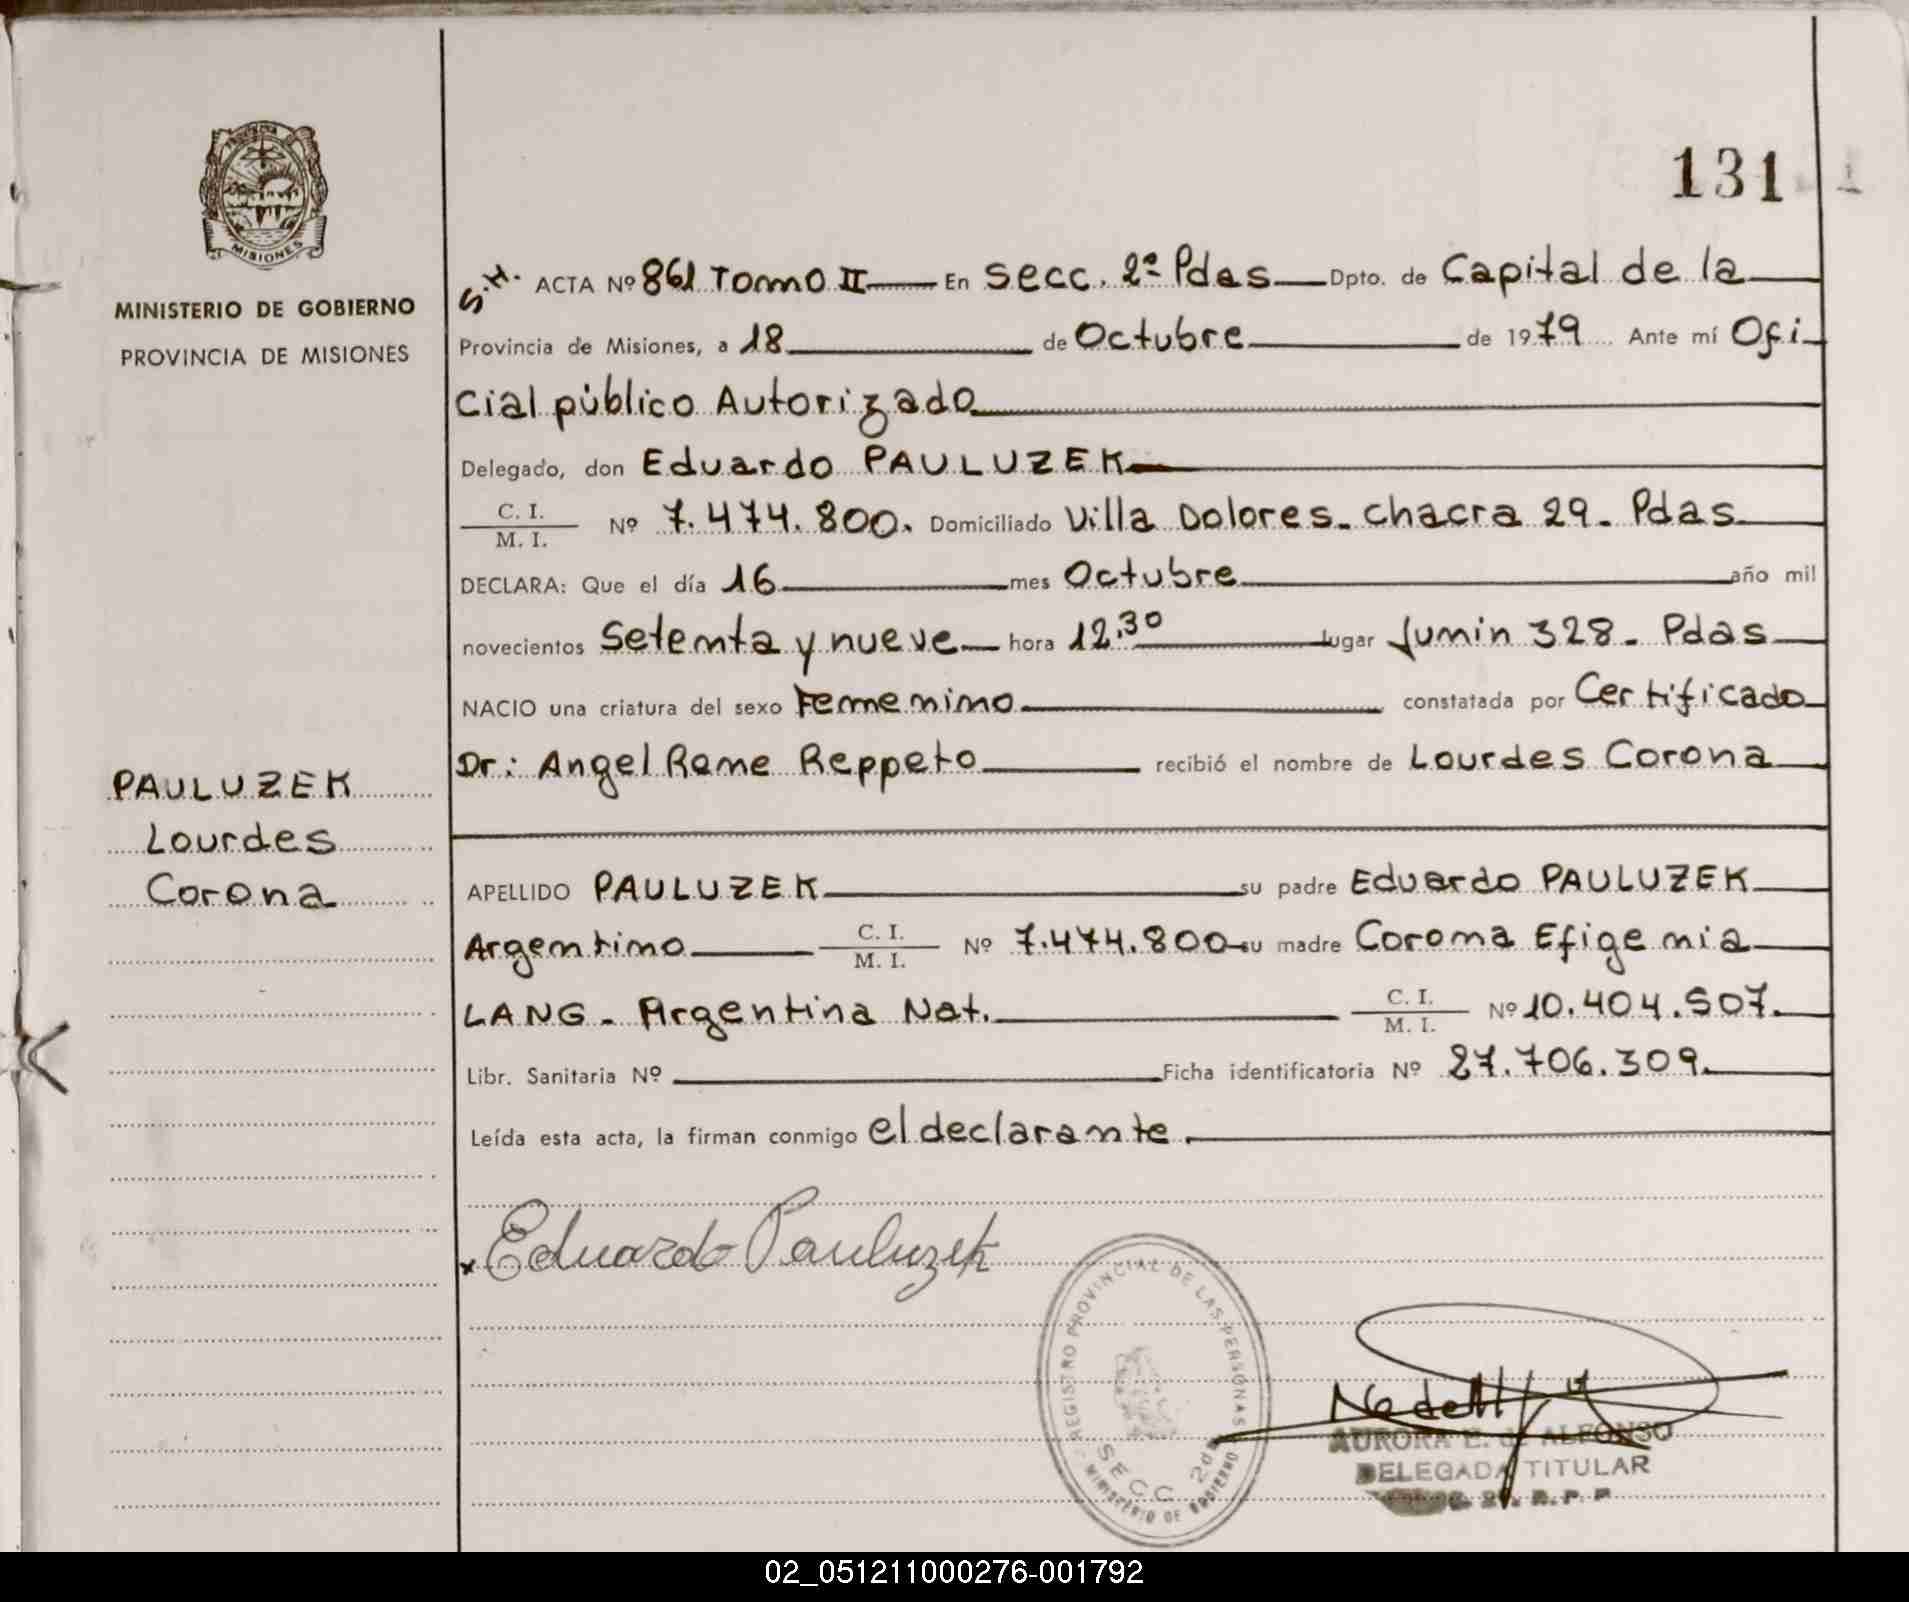 131
MISIONES
MINISTERIO DE GOBIERNO
PROVINCIA DE MISIONES
PAULUZEK
Lourdes
Corona
S.H. ACTA Nº 861 Tomo II En Secc. 2ª Pdas Dpto. de Capital de la
Provincia de Misiones, a 18 de Octubre de 1979 Ante mí Ofi
cial público Autorizado
Delegado, don Eduardo PAULUZEK
C. I. / M. I. Nº 7.474.800. Domiciliado Villa Dolores - Chacra 29 - Pdas
DECLARA: Que el día 16 mes Octubre año mil
novecientos Setenta y nueve hora 12.30 lugar Junin 328 - Pdas
NACIO una criatura del sexo Femenino constatada por Certificado
Dr: Angel Rene Reppeto recibió el nombre de Lourdes Corona
APELLIDO PAULUZEK su padre Eduardo PAULUZEK
Argentino C. I. / M. I. Nº 7.474.800 su madre Corona Efigenia
LANG - Argentina Nat. C. I. / M. I. Nº 10.404.507.
Libr. Sanitaria Nº Ficha identificatoria Nº 27.706.309.
Leída esta acta, la firman conmigo el declarante.
x Eduardo Pauluzek
REGISTRO PROVINCIAL DE LAS PERSONAS
SECC 2da
MINISTERIO DE GOBIERNO
AURORA E. de ALFONSO
DELEGADA TITULAR
R. P. P
02_051211000276-001792